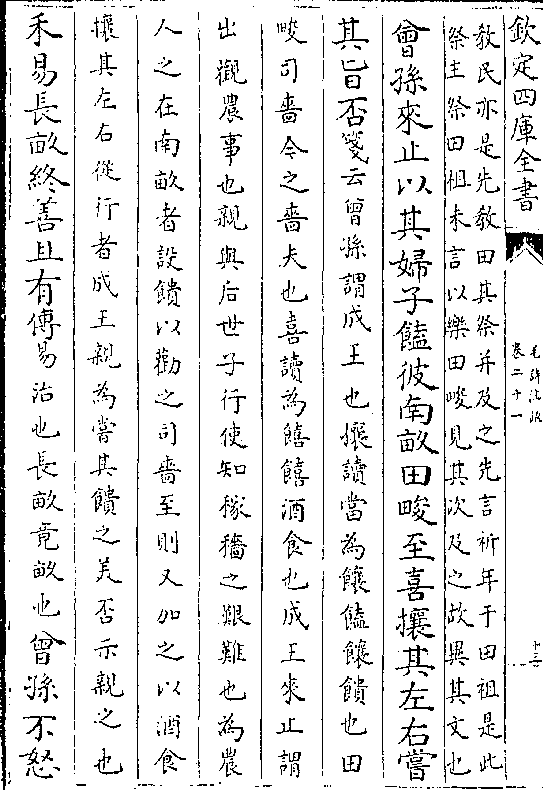 欽定四庫全書
毛詩注疏
卷二十一
十三
教民亦是先教田其祭并及之先言祈年于田祖是此
祭主祭田祖末言以樂田畯見其次及之故異其文也
曾孫來止以其婦子饁彼南畝田畯至喜攘其左右嘗
其旨否箋云曾孫謂成王也攘讀當為饟饁饟饋也田
畯司嗇今之嗇夫也喜讀為饎饎酒食也成王來止謂
出觀農事也親與后世子行使知稼穡之艱難也為農
人之在南畝者設饋以勸之司嗇至則又加之以酒食
攘其左右從行者成王親為嘗其饋之美否示親之也
禾易長畝終善且有傳易治也長畝竟畝也曾孫不怒